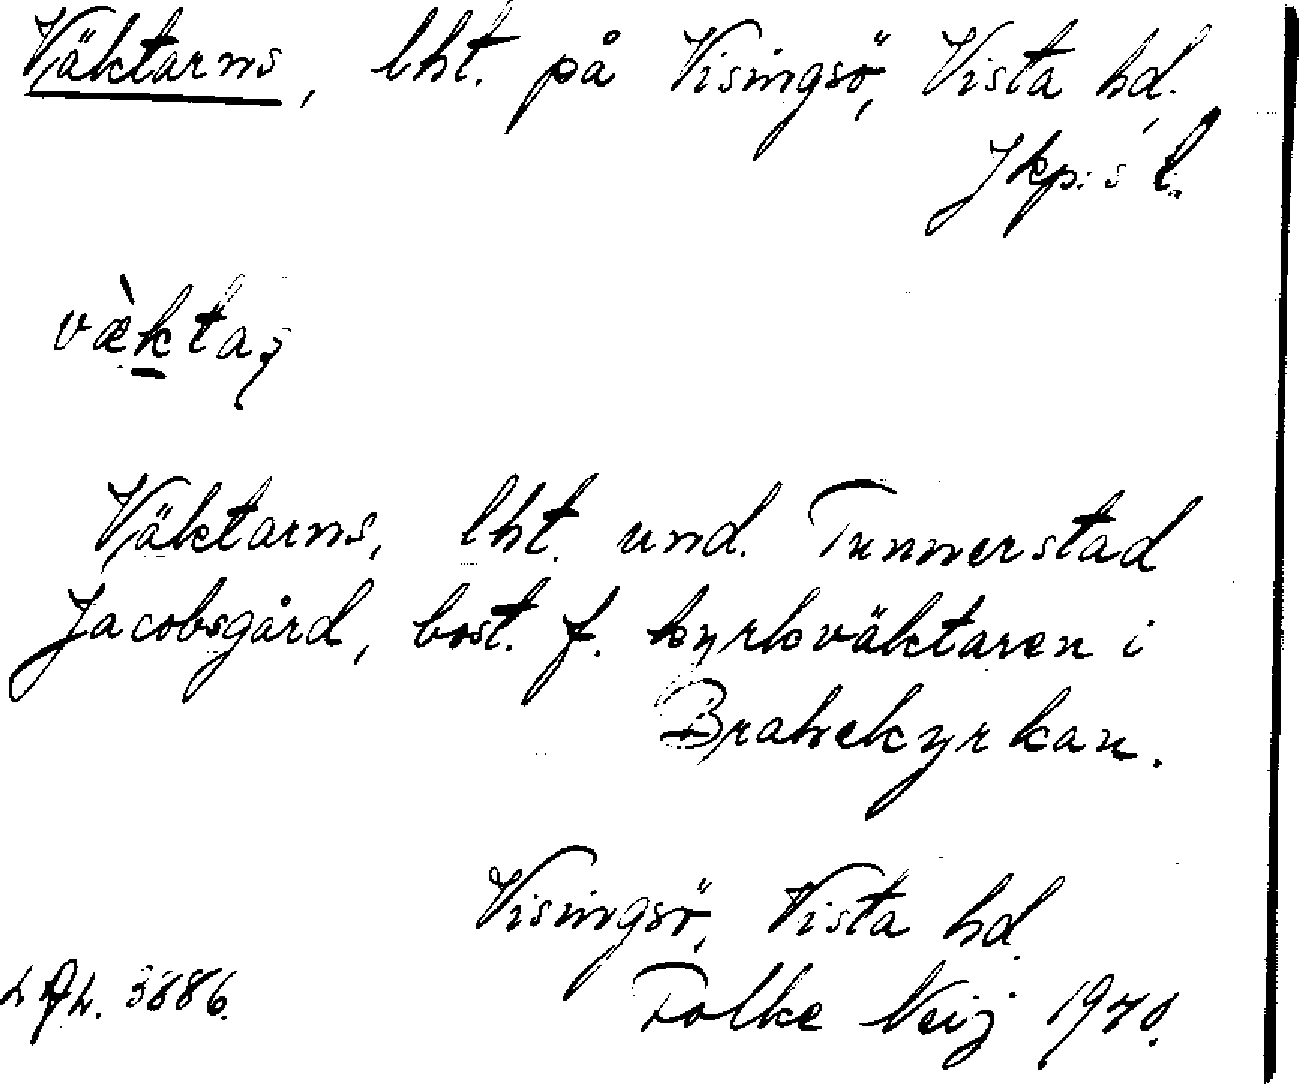 Väktarns, lht. på Visingsö, Vista hd,
Jkp:s l.
Väktarns, lht. und. Tunnerstad
Jacobsgård, bost. f. kyrkväktaren i
Brahekyrkan.
Visingsö, Vista hd.
3886.
Folke Neij 1940.